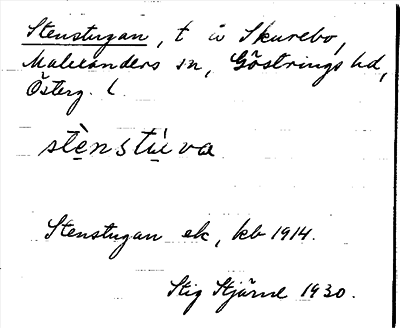 Stenstugan, t å Skurebo,
Malexanders sn, Göstrings hd,
Österg. l.
stènstù̀va
Stenstugan ek, kb 1914.
Stig Stjärne 1930.